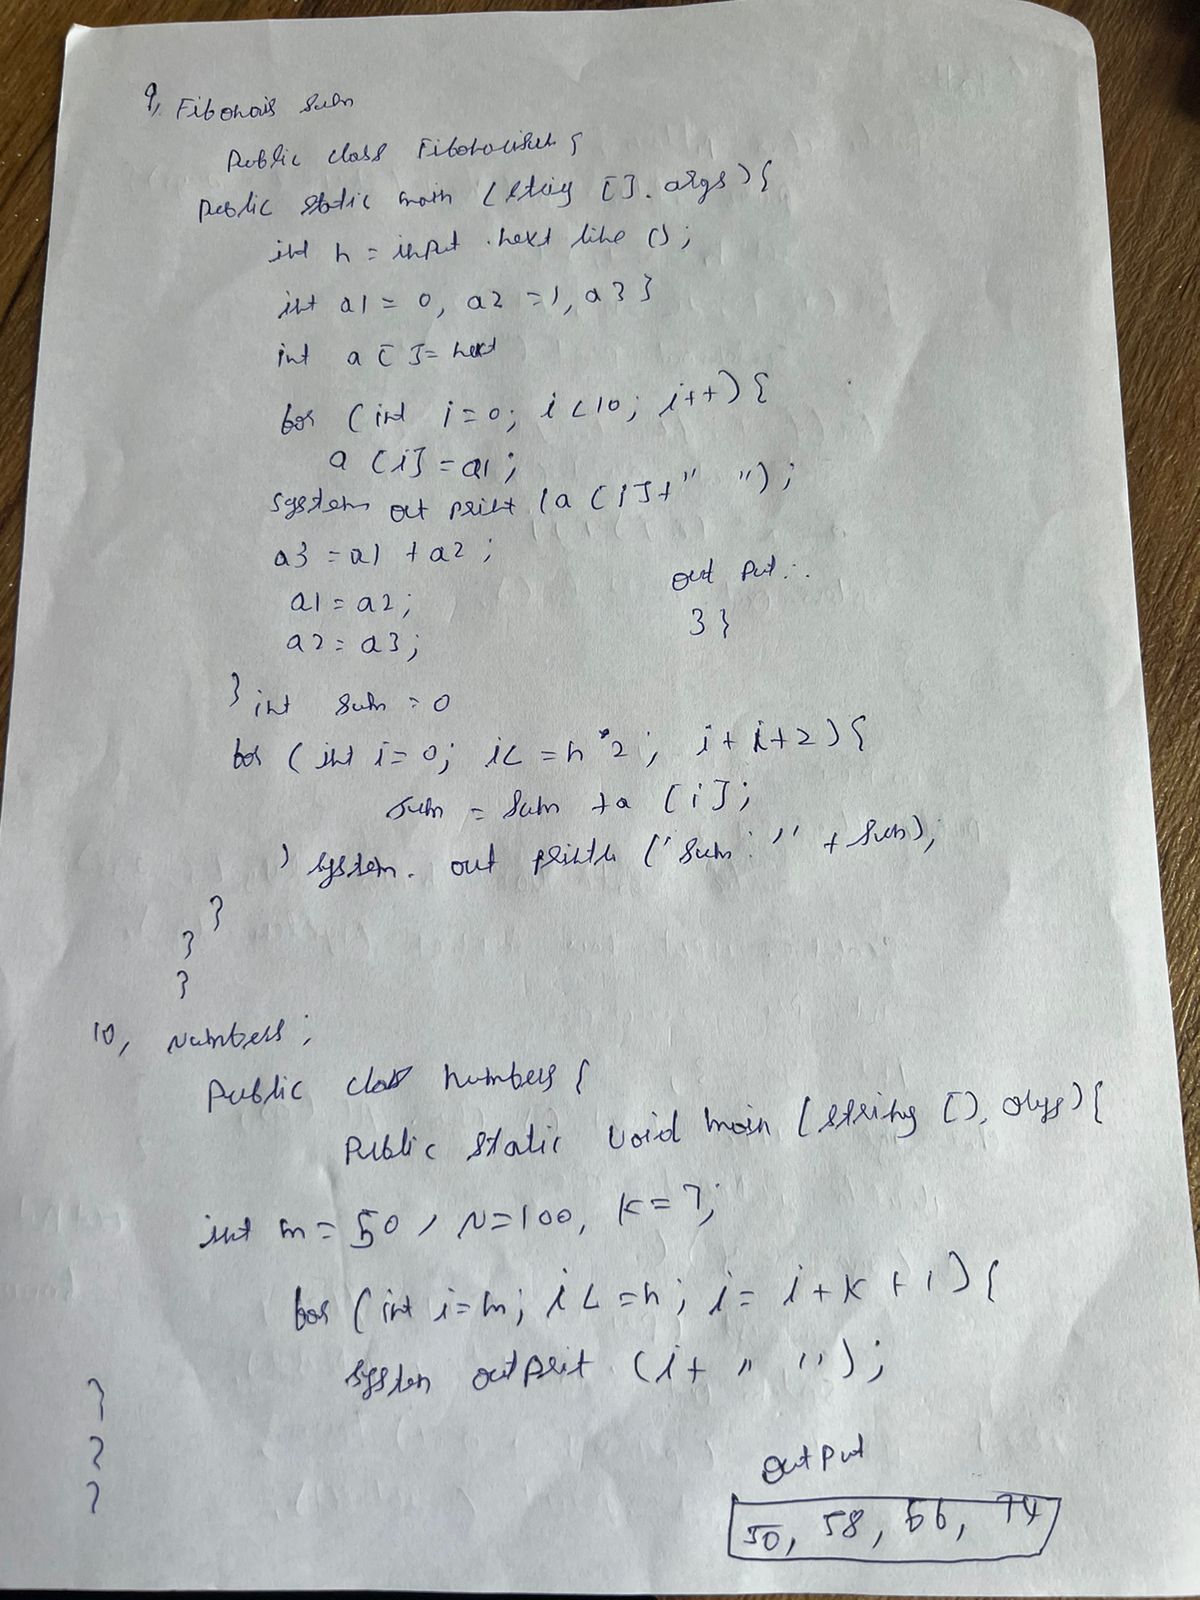 9, Fibonais sum
Public class Fibonaisum {
Public static main (string []. args) {
int n = input . next line ();
int a1 = 0, a2 = 1, a3 }
int a [] = next
for (int i = 0; i < 10; i++) {
a [i] = a1;
system out print (a [i] + " ");
a3 = a1 + a2 ;
out put :.
a1 = a2;
3 }
a2 = a3;
} int sum = 0
for (int i = 0; i < = n * 2 ; i + i + 2) {
sum = sum + a [i];
) system . out println ("sum : " + sum),
}
}
}
10, Numbers ;
Public class numbers {
Public static void main (string [], args) {
int m = 50 , N = 100, K = 7;
for (int i = m; i < = n; i = i + K + 1) {
system out print (i + " ");
}
}
}
output
50, 58, 66, 74